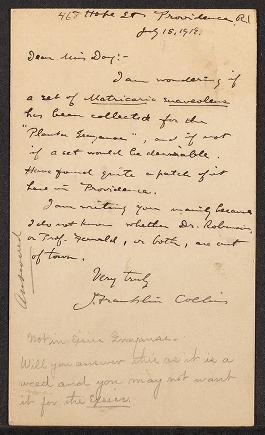 468 Hope St Providence, R.I
July 15, 1918.
Dear Miss Day:-
I am wondering if
a set of Matricaria suaveolens
has been collected for the
"Plantae Exsiccatae", and if not
if a set would be desirable.
Have found quite a patch of it
here in Providence.
I am writing you mainly because
I do not know whether Dr. Robinson,
or Prof. Fernald, or both, are out
of town.
Very truly
J. Franklin Collins
Answered
Not in Grayanae.
Will you answer this as it is a
weed and you may not want
it for the